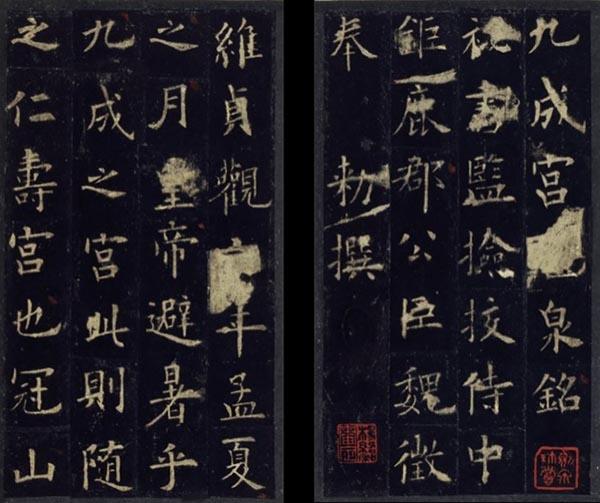 九成宮泉銘
秘書監撿挍侍中
鉅鹿郡公臣魏徵
奉 勅撰
維貞觀六年孟夏
之月皇帝避暑乎
九成之宮此則隨
之仁壽宮也冠山